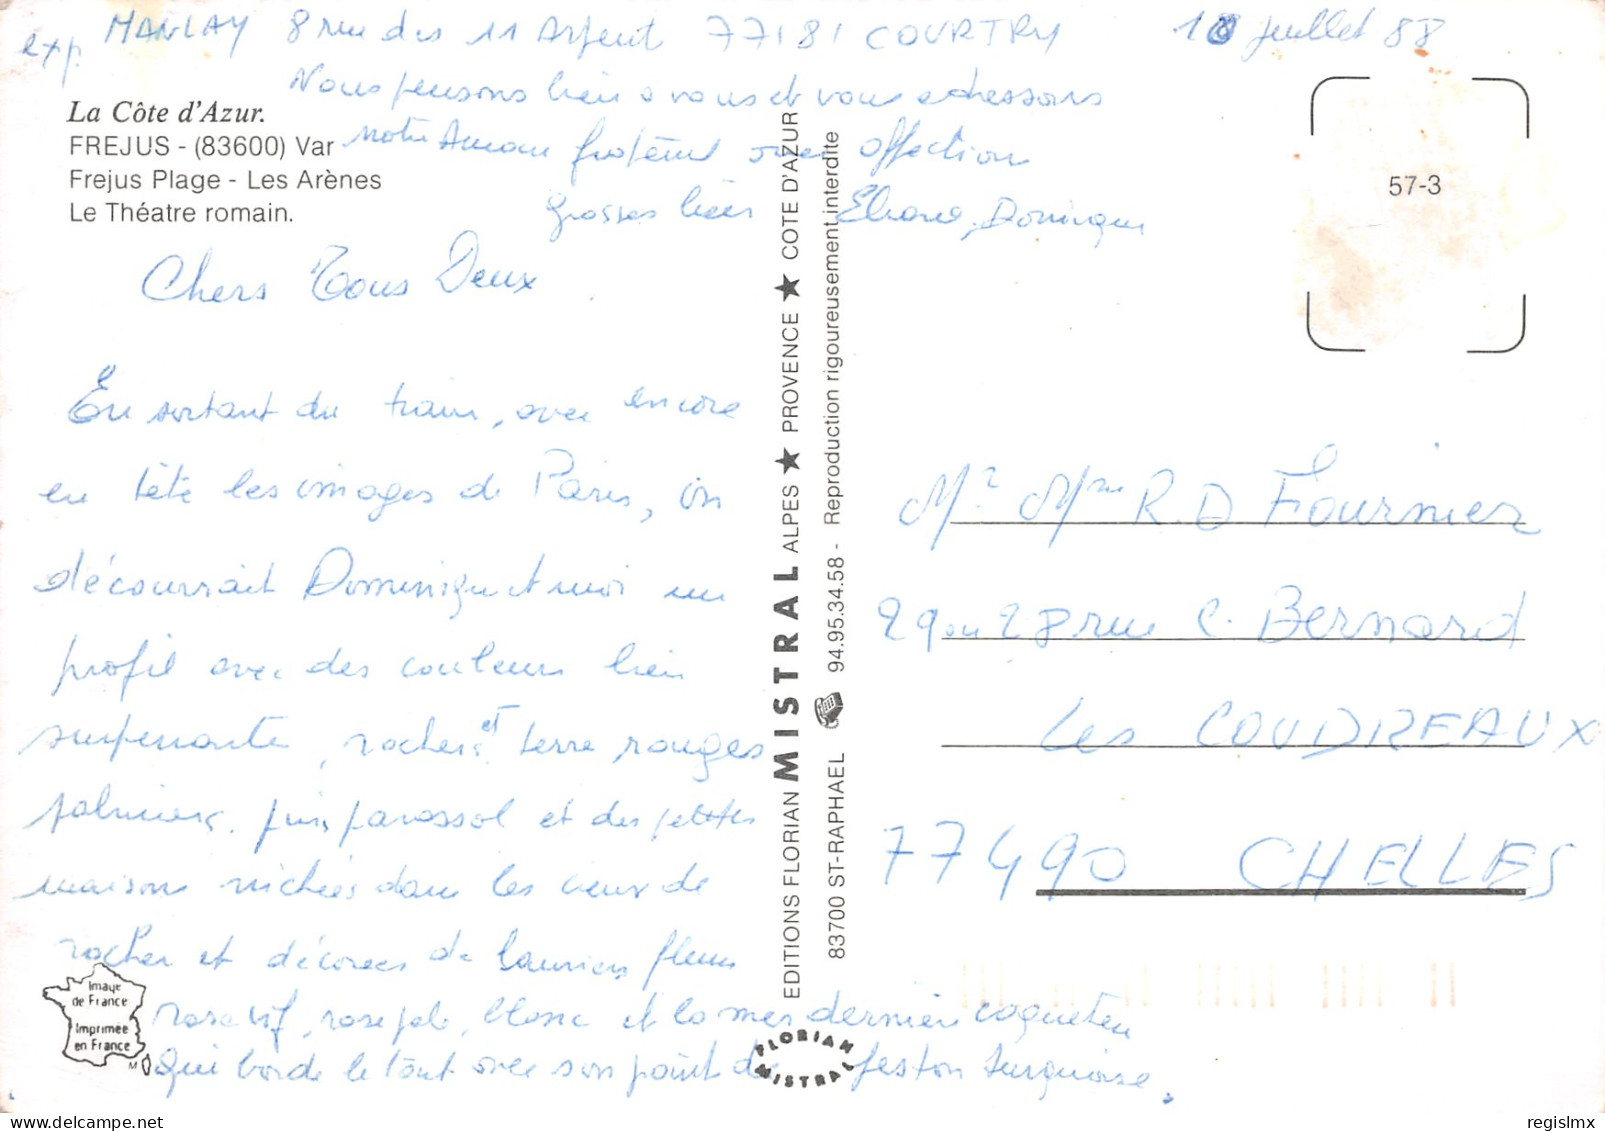 exp. MANLAY 8 rue des 11 Arpent 77181 COURTRY 18 juillet 88
Nous pensons bien à vous et vous adressons
notre Amour fraternel avec affection
grosses bises Eliane, Dominique
La Côte d'Azur.
FREJUS - (83600) Var
Frejus Plage - Les Arènes
Le Théatre romain.
57-3
Chers Tous Deux
En sortant du train, avec encore
en tête les images de Paris, on
découvrait Dominique et moi un
profil avec des couleurs bien
surprenante, rochers et terre rouges
palmiers, pins parassol et des petites
maisons nichées dans les creux de
rocher et décorées de lauriers fleurs
rose vif, rose pale, blanc et la mer dernière coquetterie
qui borde le tout avec son point de feston turquoise.
Mr Mme R. D Fournier
29 ou 28 rue C. Bernard
Les COUDREAUX
77490 CHELLES
EDITIONS FLORIAN MISTRAL ALPES ★ PROVENCE ★ COTE D'AZUR
83700 ST-RAPHAEL 94.95.34.58 - Reproduction rigoureusement interdite
Image
de France
Imprimée
en France
M
FLORIAN
MISTRAL
regislmx